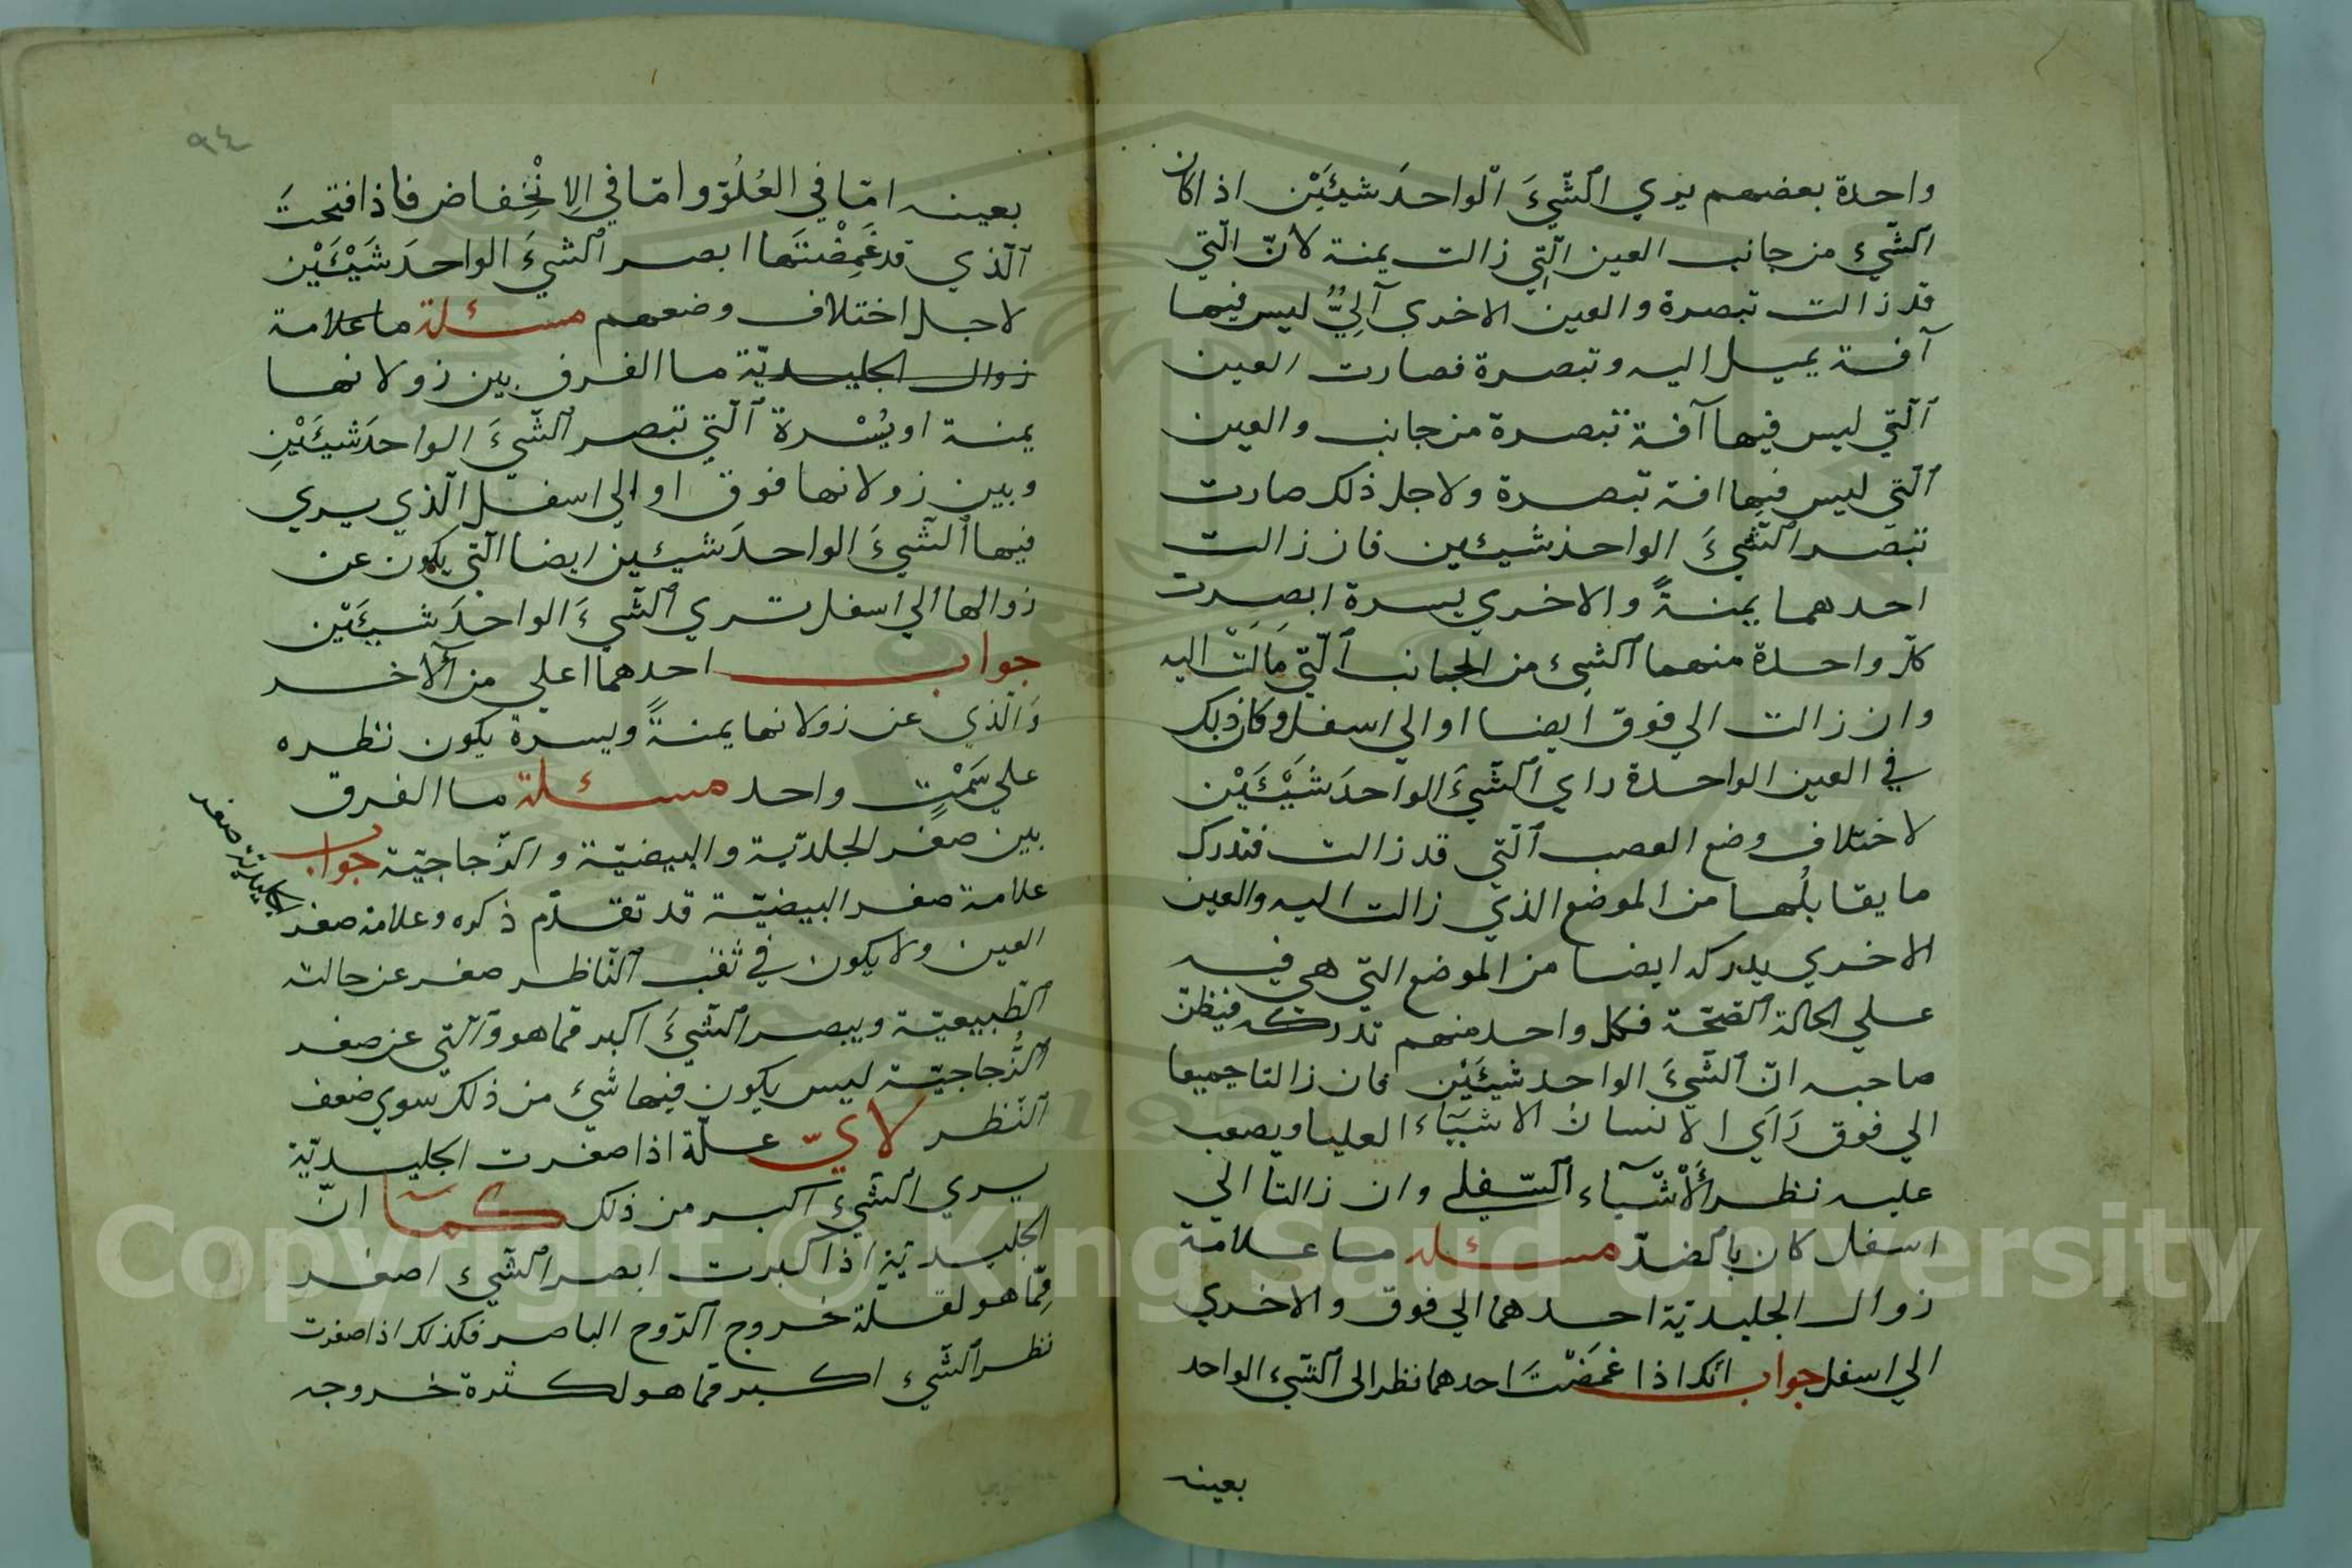 واحدة بعضهم يري الشّيءَ الواحدَ شيئَيْن اذا كان
الشّيء من جانب العين الّتي زالت يمنة لانّ الّتي
قد زالت تبصرة والعين الاخري آلِيٌّ ليس فيها
آفة يميل اليه وتبصرة فصارت العين
الّتي ليس فيها آفة تبصرة من جانب والعين
الّتي ليس فيها افة تبصرة ولاجل ذلك صارت
تبصر الشّيءَ الواحد شيئين فان زالت
احدهما يمنةً والاخري يسرة ابصرت
كلّ واحدة منهما الشيء من الجانب الّتي مَالَتْ اليه
وان زالت الي فوق ايضا او الي اسفل وكان ذلك
في العين الواحدة راي الشّيءَ الواحدَ شَيْئَيْن
لاختلاف وضع العصب الّتي قد زالت فتدرك
ما يقابلُها من الموضع الذي زالت اليه والعين
الاخري يدركه ايضا من الموضع التي هي فيه
علي الحالة الصّحّة فكل واحد منهم تدركه فيظنّ
صاحبه انّ الشّيءَ الواحد شيئَيْن فان زالتا جميعا
الي فوق رَاَي الانسانُ الاشيَآء العليا ويصعب
عليه نظر الْأَشْيَآء السّفلي وان زالتا الي
اسفل كان بالضدّ مسئله ما علامة
زوال الجليديّة احدهما الي فوق والاخري
الي اسفل جواب انّك اذا غمَضْتَ احدهما نظر الى الشّيء الواحد
بعينه
٩٤
بعينه امّا في العُلُوّ وامّا في الِانْخِفاض فاذا فتحتَ
الّذي قد غَمِضْتَها ابصر الشيءَ الواحدَ شَيْئَيْن
لاجل اختلاف وضعهم مسئلة ما علامة
زوال الجليديّة ما الفرق بين زولانها
يمنة او يُسْرة الّتي تبصر الشّيءَ الواحدَ شيئَيْنِ
وبين زولانها فوق او الي اسفل الّذي يري
فيها الشّيءَ الواحدَ شيئين ايضا الّتي يكون عن
زوالها الي اسفل تري الشّيءَ الواحدَ شيئَيْن
جواب احدهما اعلي من الآخر
وَالّذي عن زولانها يمنةً ويسرة يكون نظره
علي سَمْتٍ واحد مسئلة ما الفرق
بين صغر الجلديّة والبيضيّة والزّجاجيّة جواب
علامة صغر البيضيّة قد تقدّم ذكره وعلامة صغر
الجليديّة صغر
العين ولا يكون في ثقب النّاظر صغر عن حالته
الطّبيعيّة ويبصر الشّيءَ اكبر ممّا هو والّتي عن صغر
الزّجاجيّة ليس يكون فيها شيء من ذلك سوي ضعف
النّظر لايّ علّة اذا صغرت الجليديّة
يري الشّيء اكبر من ذلك كمآ انّ
الجليديّة اذا كبرت ابصر الشّيء اصغر
مِمّا هو لقلّة خروج الرّوح الباصر فكذلك اذا صغرت
نظر الشّيء اكبر ممّا هو لكثرة خروجه
Copyright © King Saud University
1957